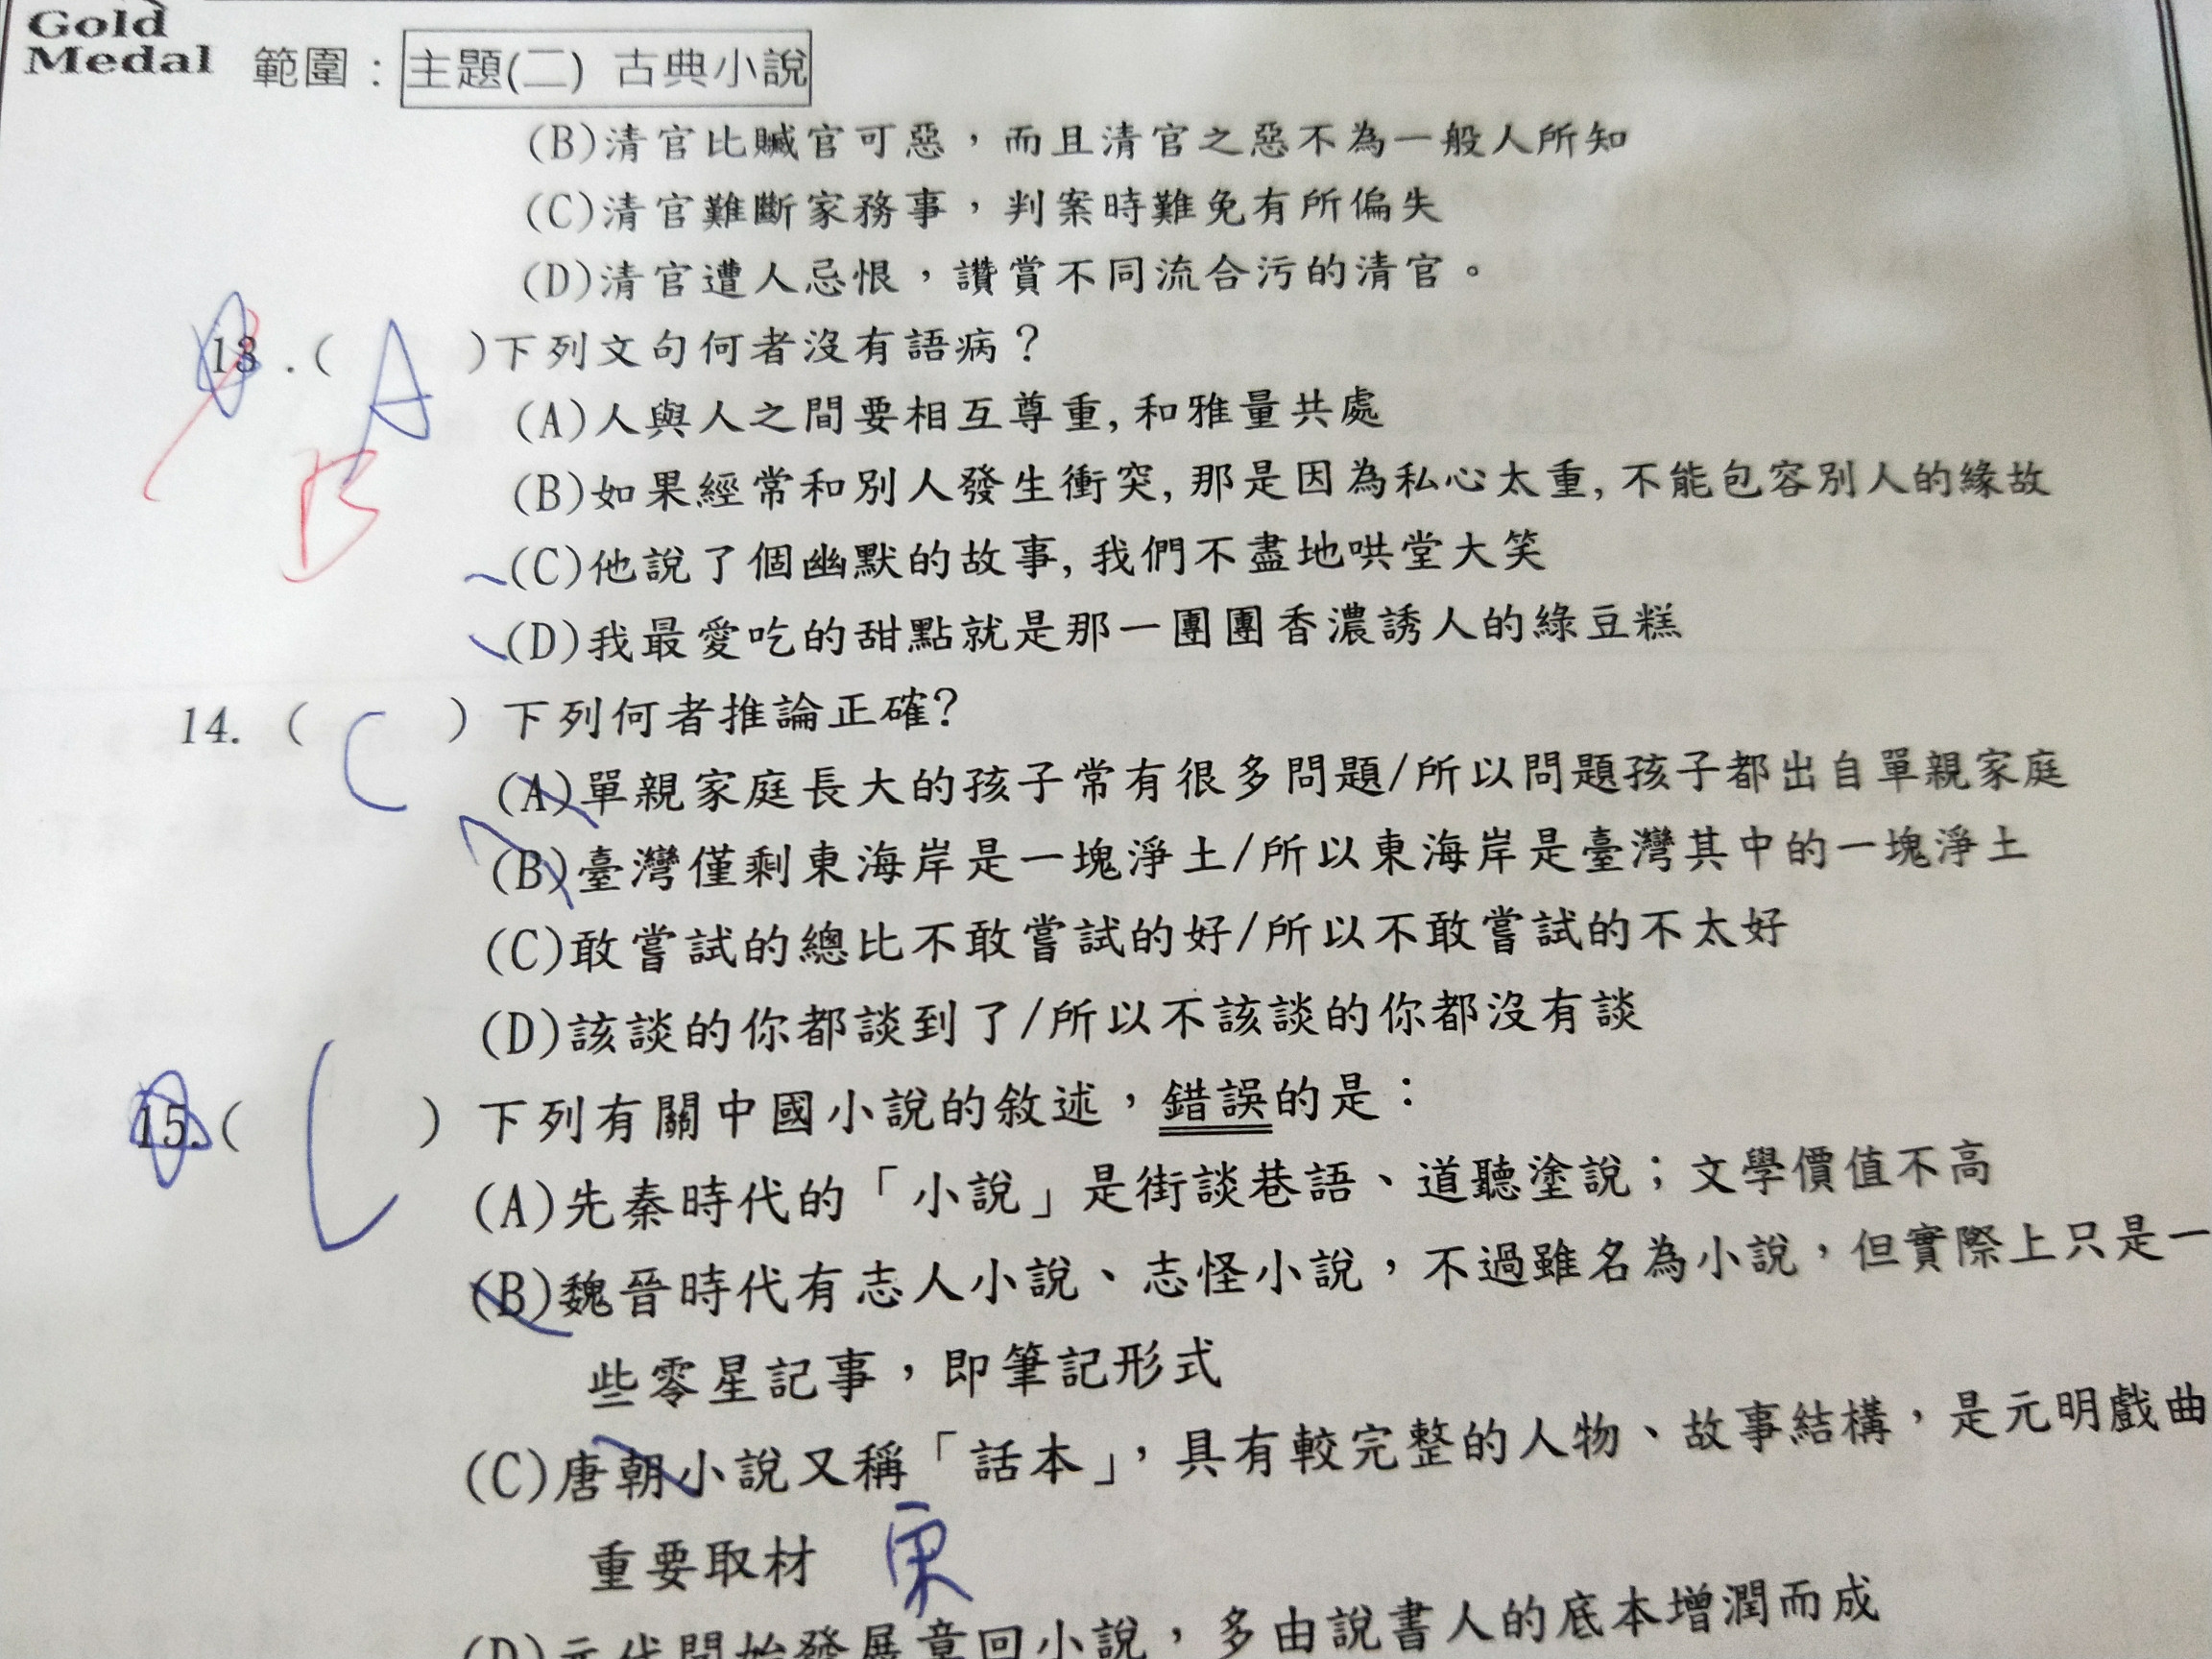 Gold
Medal 範圍：主題(二) 古典小說
(B)清官比贓官可惡，而且清官之惡不為一般人所知
(C)清官難斷家務事，判案時難免有所偏失
(D)清官遭人忌恨，讚賞不同流合污的清官。
13.( A )下列文句何者沒有語病？
B
(A)人與人之間要相互尊重,和雅量共處
(B)如果經常和別人發生衝突,那是因為私心太重,不能包容別人的緣故
(C)他說了個幽默的故事,我們不盡地哄堂大笑
(D)我最愛吃的甜點就是那一團團香濃誘人的綠豆糕
14. ( C ) 下列何者推論正確?
(A)單親家庭長大的孩子常有很多問題/所以問題孩子都出自單親家庭
(B)臺灣僅剩東海岸是一塊淨土/所以東海岸是臺灣其中的一塊淨土
(C)敢嘗試的總比不敢嘗試的好/所以不敢嘗試的不太好
(D)該談的你都談到了/所以不該談的你都沒有談
15.( C ) 下列有關中國小說的敘述，錯誤的是：
(A)先秦時代的「小說」是街談巷語、道聽塗說；文學價值不高
(B)魏晉時代有志人小說、志怪小說，不過雖名為小說，但實際上只是一
些零星記事，即筆記形式
(C)唐朝小說又稱「話本」，具有較完整的人物、故事結構，是元明戲曲
重要取材 宋
(D)元代開始發展章回小說，多由說書人的底本增潤而成